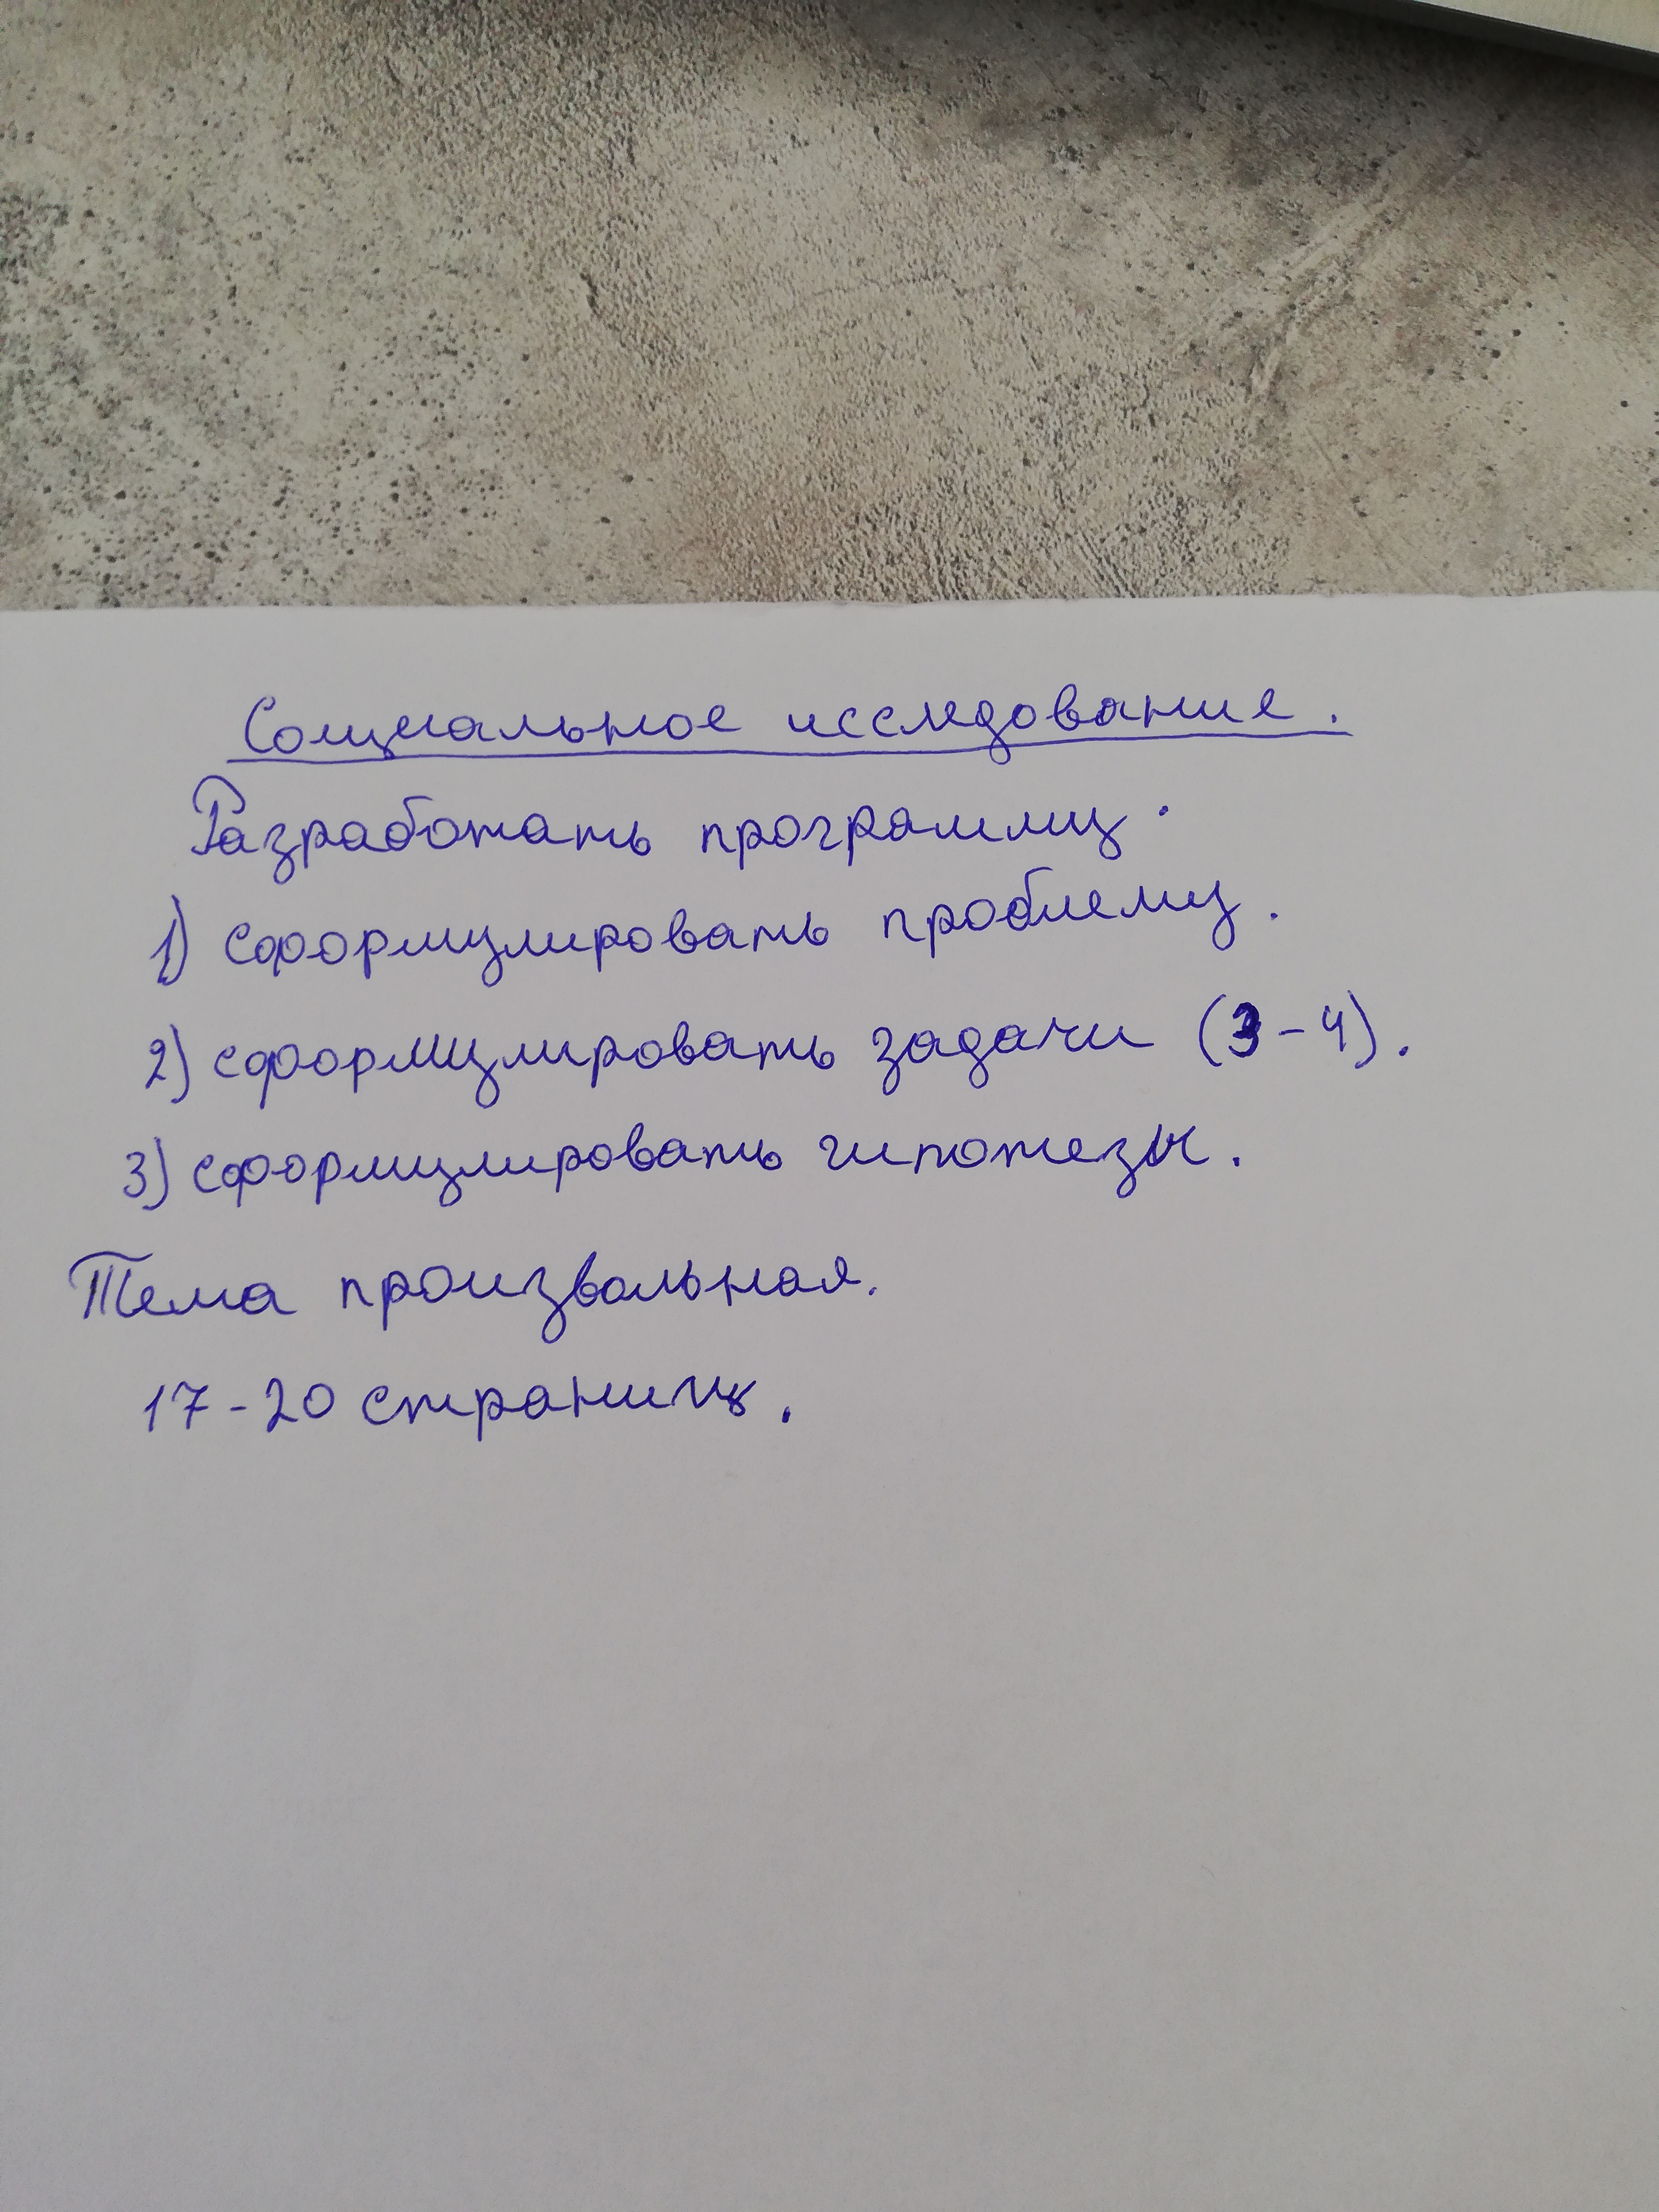 Социальное исследование.
Разработать программу.
1) сформулировать проблему.
2) сформулировать задачи (3-4).
3) сформулировать гипотезы.
Тема произвольная.
17-20 страниц.